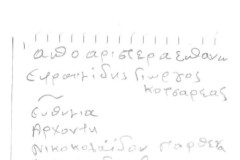 από αριστερα Ευθανα
Ευραιμίδης Γιωργος
κοτσαρεας
Ευθυμια
Αρχοντη
Νικολαΐδου Παρθεν